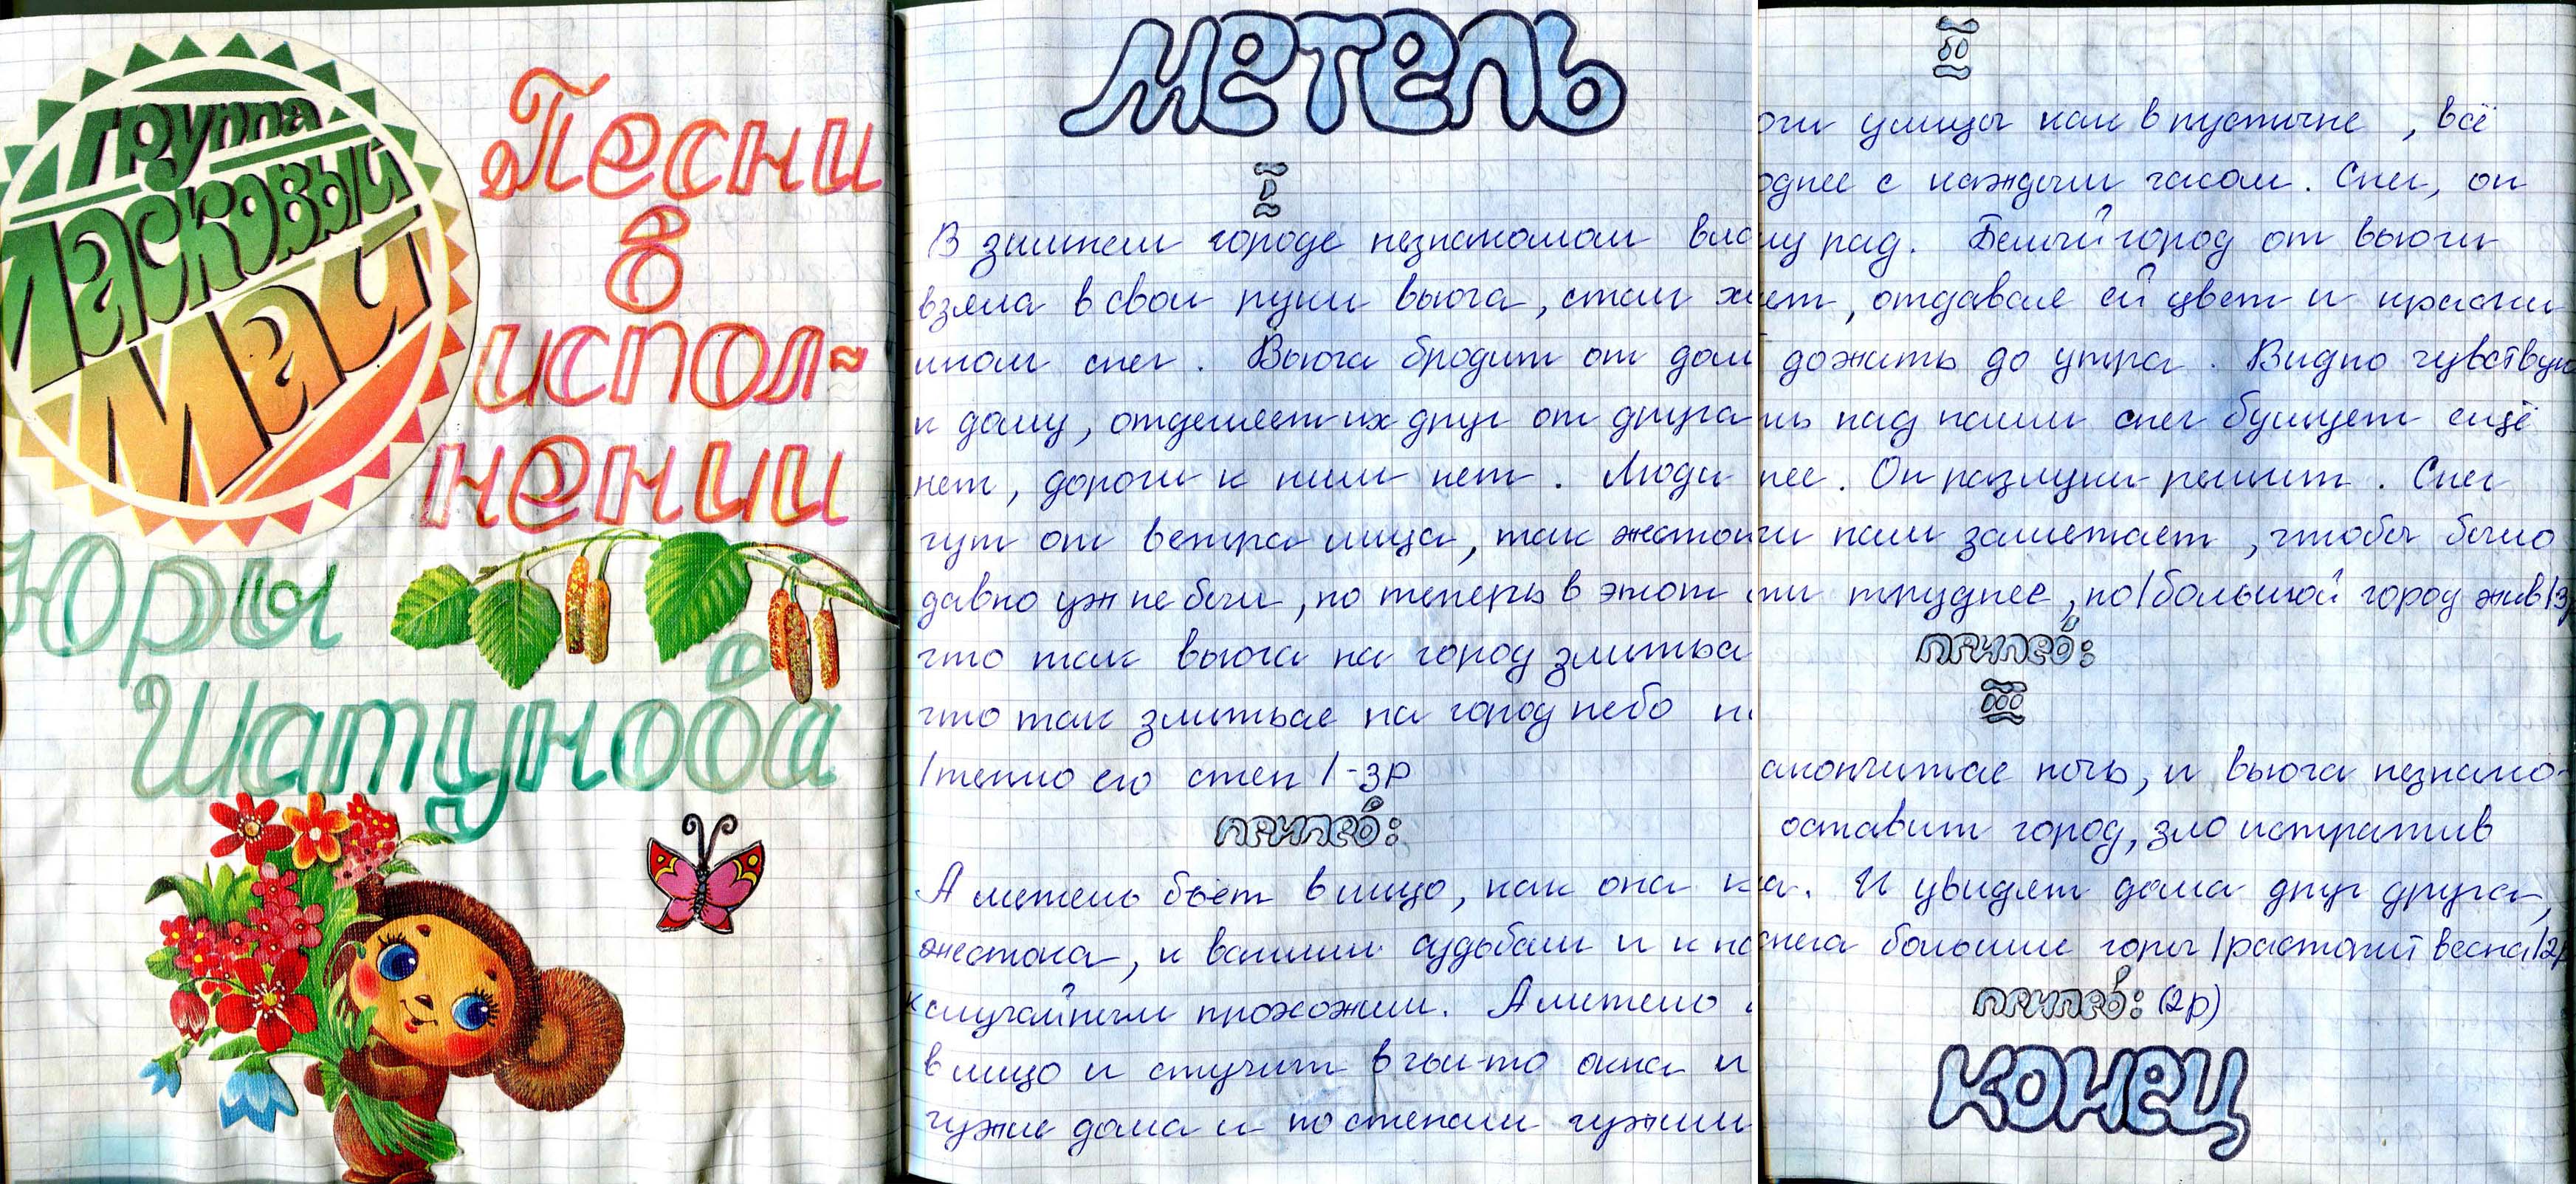 Группа
Ласковый
Май
Песни
в
испол-
нении
Юры
Шатунова
Метель
I
В зимнем городе незнакомом
взяла в свои руки вьюга, стал
ином снег. Вьюга бродит от
к дому, отделяет их друг от друга
нет, дороги к ним нет. Люди
от ветра лица, так
давно уж не был, но теперь в этот
что так вьюга на город злиться
что так злиться на город небо
/тепло его стен/-3р
припев:
А метель бьёт в лицо, как она
жестока, к вашим судьбам и к
к случайным прохожим. А метель
в лицо и стучит в чьи-то окна и
чужие дома и по стенам чужим
II
улицы как в пустыне, всё
с каждым часом. Снег, он
рад. Белый город от вьюги
отдавая ей цвет и краски
дожить до утра. Видно
над ним снег бушует ещё
Он разлуки решит. Снег
нам заметает, чтобы было
труднее, но/большой город жив/3
припев:
III
ночь, и вьюга незнако-
оставит город, зло истратив
И увидят дома друг друга,
снега большие горы /растопит весна/2р
припев: (2р)
конец